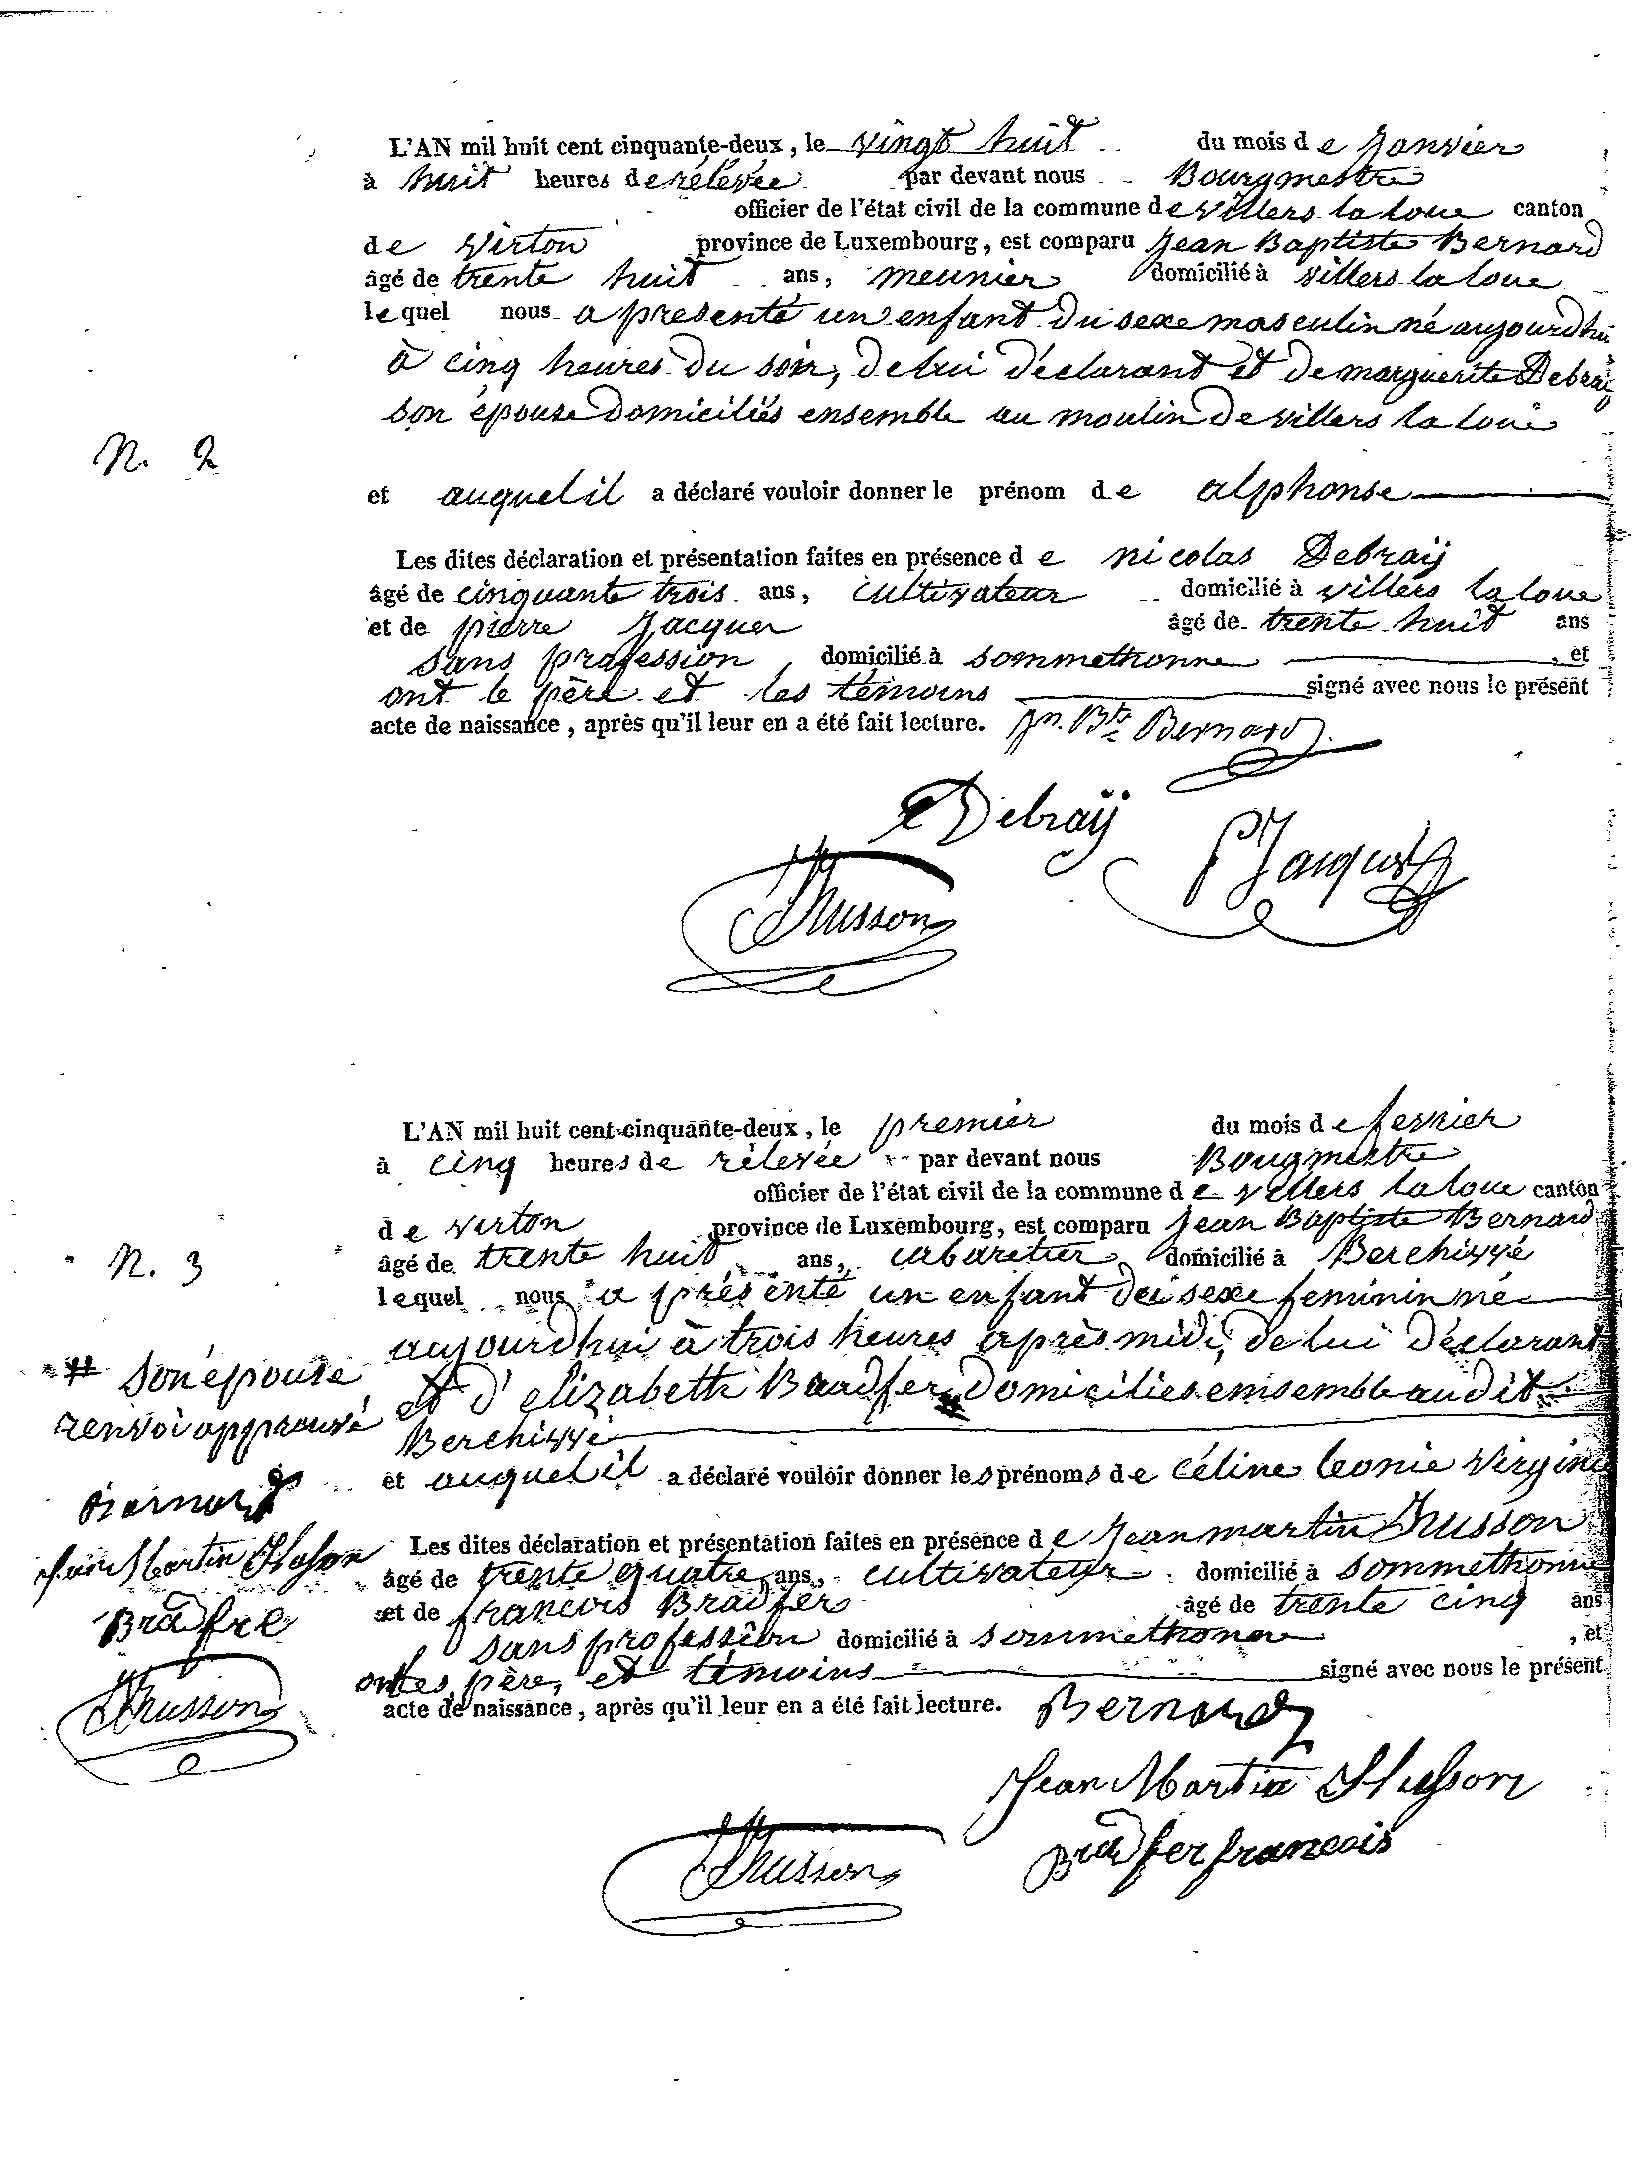 L'AN mil huit cent cinquante-deux, le vingt huit du mois de Janvier
à huit heures de rélévée par devant nous Bourgmestre
officier de l'état civil de la commune de villers la loue canton
de Virton province de Luxembourg, est comparu Jean Baptiste Bernard
âgé de trente huit ans, meunier domicilié à villers la loue
lequel nous a presenté un enfant du sexe masculin né aujourdhui
à cinq heures du soir, de lui déclarant et de marguerite Debraÿ
son épouse domiciliés ensemble au moulin de villers la loue
N. 2
et auquel il a déclaré vouloir donner le prénom de alphonse
Les dites déclaration et présentation faites en présence de nicolas Debraÿ
âgé de cinquante trois ans, cultivateur domicilié à villers la loue
et de pierre Jacques âgé de trente huit ans
sans profession, domicilié à sommethonne, et
ont le père et les témoins signé avec nous le présent
acte de naissance, après qu'il leur en a été fait lecture. Jn. Bte Bernard
Debraÿ
P Jacques
Husson
L'AN mil huit cent cinquante-deux, le premier du mois de fevrier
à cinq heures de rélevée par devant nous Bougmestre
officier de l'état civil de la commune de villers la loue canton
de Virton province de Luxembourg, est comparu Jean Baptiste Bernard
N. 3
âgé de trente huit ans, cabaretier domicilié à Berchiwé
lequel nous a présenté un enfant du sexe feminin né
aujourdhui à trois heures après midi, de lui déclarant
et d'elizabeth Bradfer # domiciliés ensemble audit
# son épouse
renvoi approuvé
Berchiwé
et auquel il a déclaré vouloir donner les prénoms de céline leonie virginie
Bernard
Les dites déclaration et présentation faites en présence de Jean martin Husson
Jean Martin Husson
âgé de trente quatre ans, cultivateur domicilié à sommethonne
et de francois Bradfer âgé de trente cinq ans
Bradfre
sans profession domicilié à sommethonne, et
ont les père, et témoins signé avec nous le présent
acte de naissance, après qu'il leur en a été fait lecture. Bernard
Husson
Jean Martin Husson
Bradfer francois
Husson